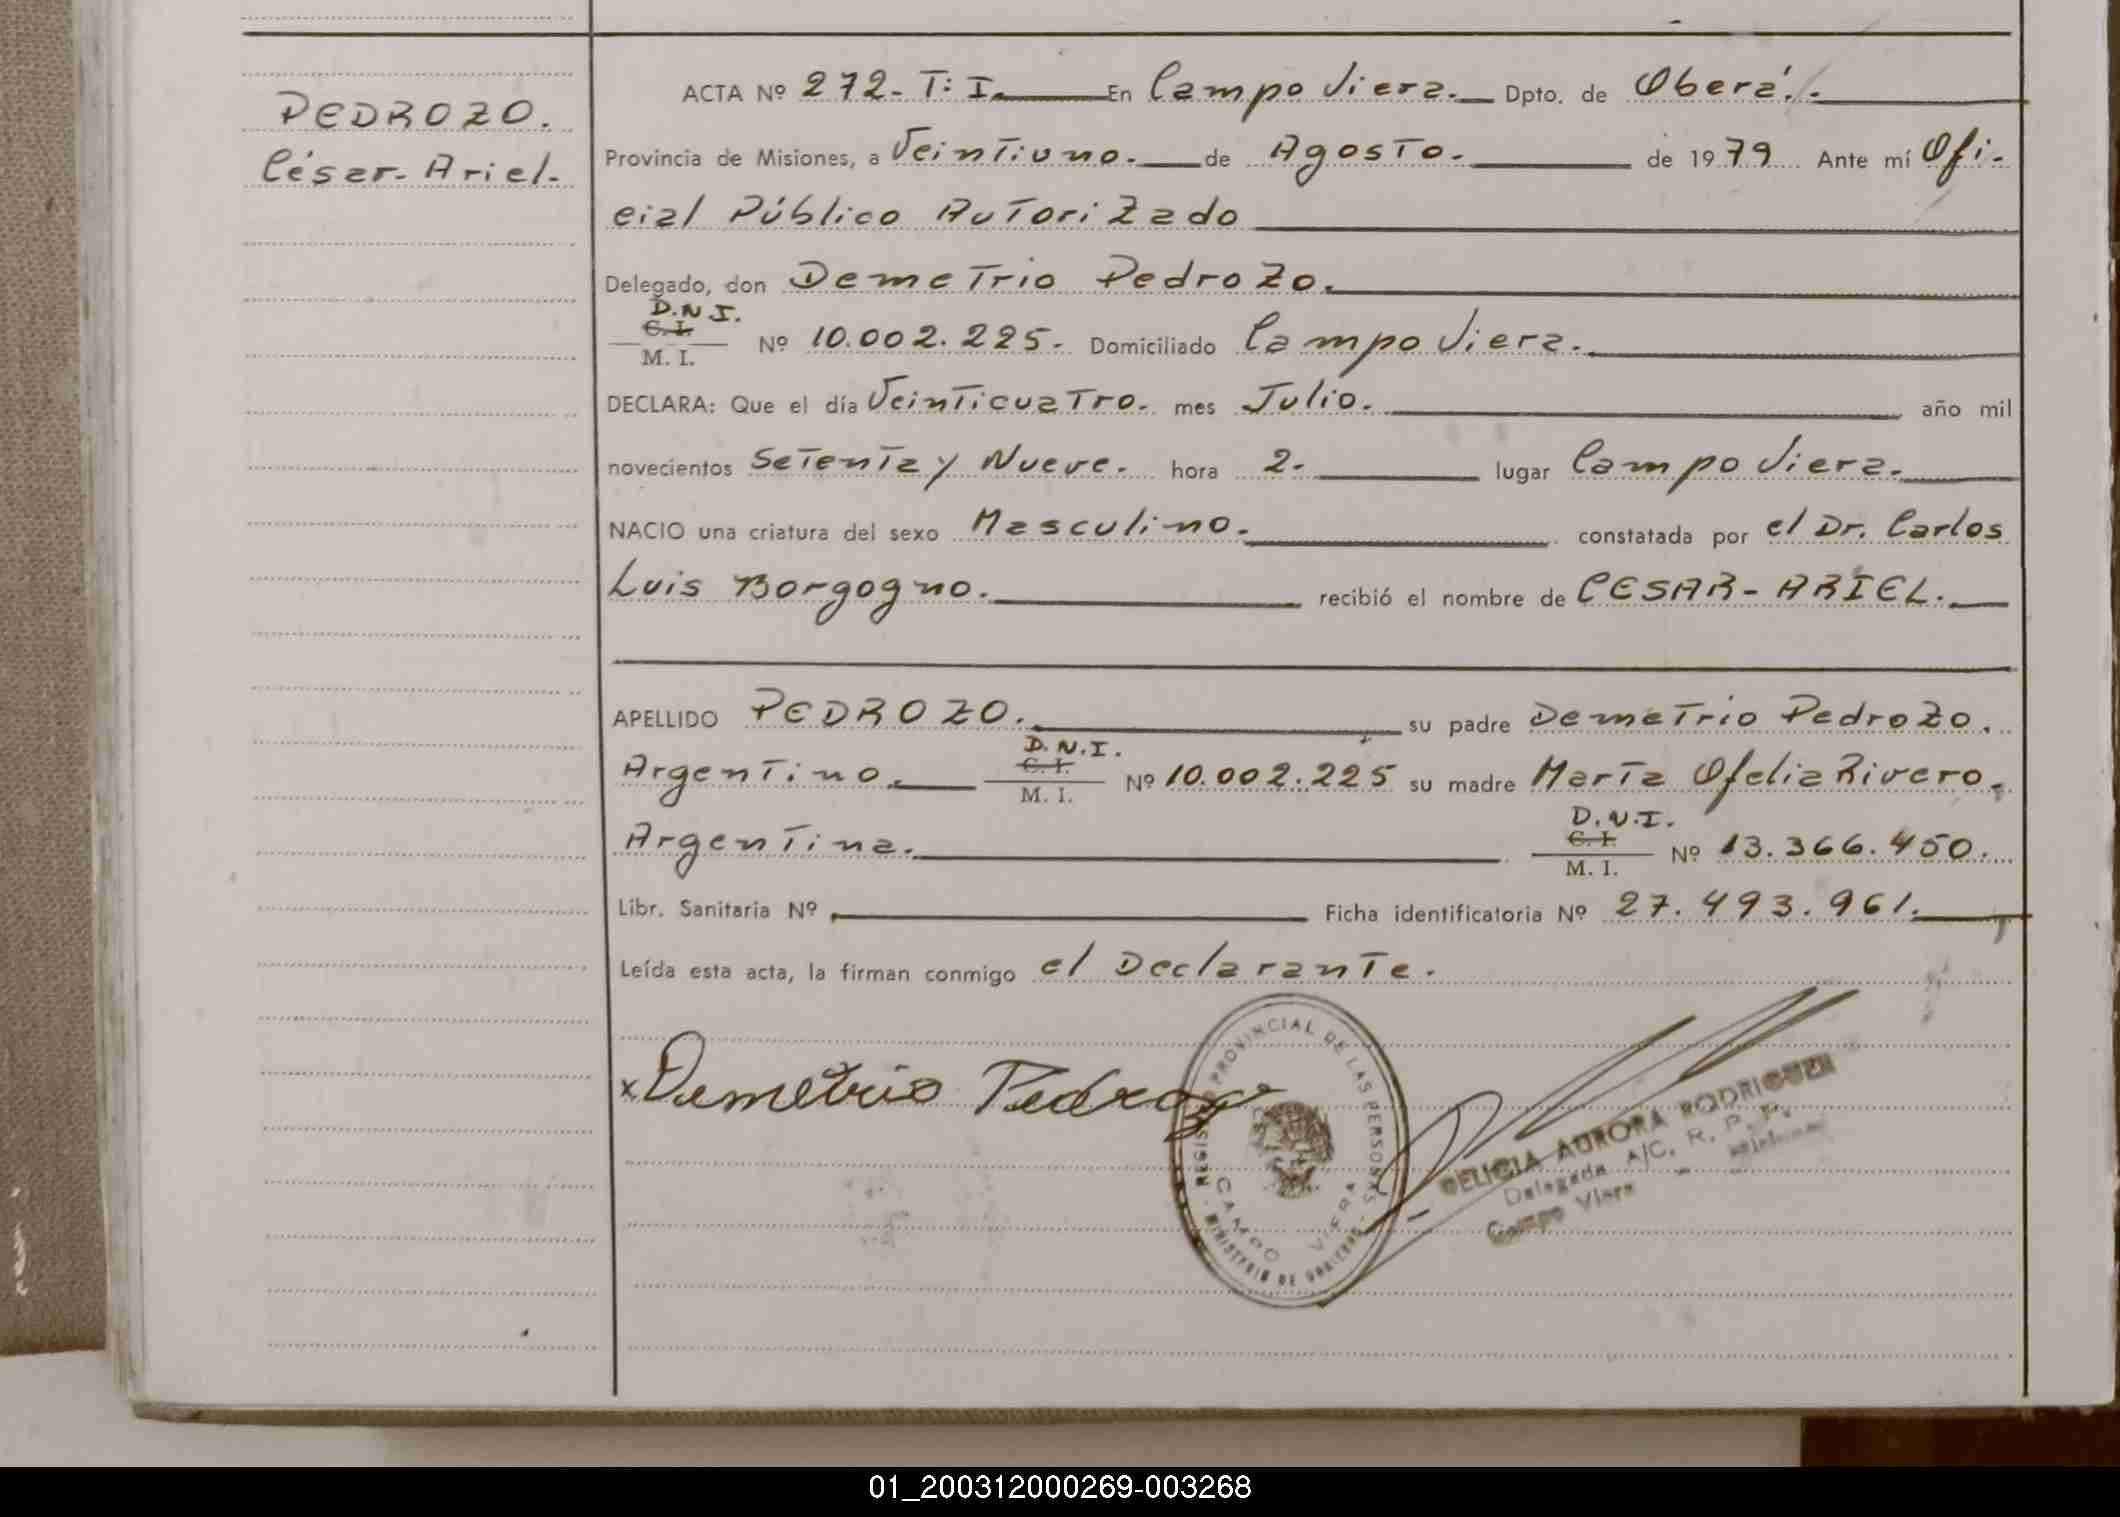 PEDROZO.
César-Ariel-
ACTA Nº 272-T: I. En Campo Viera. Dpto. de Oberá.
Provincia de Misiones, a Veintiuno. de Agosto. de 1979 Ante mí Ofi-
cial Público Autorizado
Delegado, don Demetrio Pedrozo.
D.N.I.
C. I.
M. I. Nº 10.002.225- Domiciliado Campo Viera.
DECLARA: Que el día Veinticuatro. mes Julio. año mil
novecientos Setenta y Nueve. hora 2. lugar Campo Viera.
NACIO una criatura del sexo Masculino. constatada por el Dr. Carlos
Luis Borgogno. recibió el nombre de CESAR-ARIEL.
APELLIDO PEDROZO. su padre Demetrio Pedrozo.
D.N.I.
C. I.
Argentino. M. I. Nº 10.002.225 su madre María Ofelia Rivero.
D.N.I.
C. I.
Argentina. M. I. Nº 13.366.450.
Libr. Sanitaria Nº Ficha identificatoria Nº 27.493.961.
Leída esta acta, la firman conmigo el Declarante.
x Demetrio Pedrozo
PROVINCIAL DE LAS PERSONAS
CAMPO VIERA
MINISTERIO DE GOBIERNO
AURORA RODRIGUEZ
Delegada A/C. R. P. P.
Campo Viera - Misiones
01_200312000269-003268